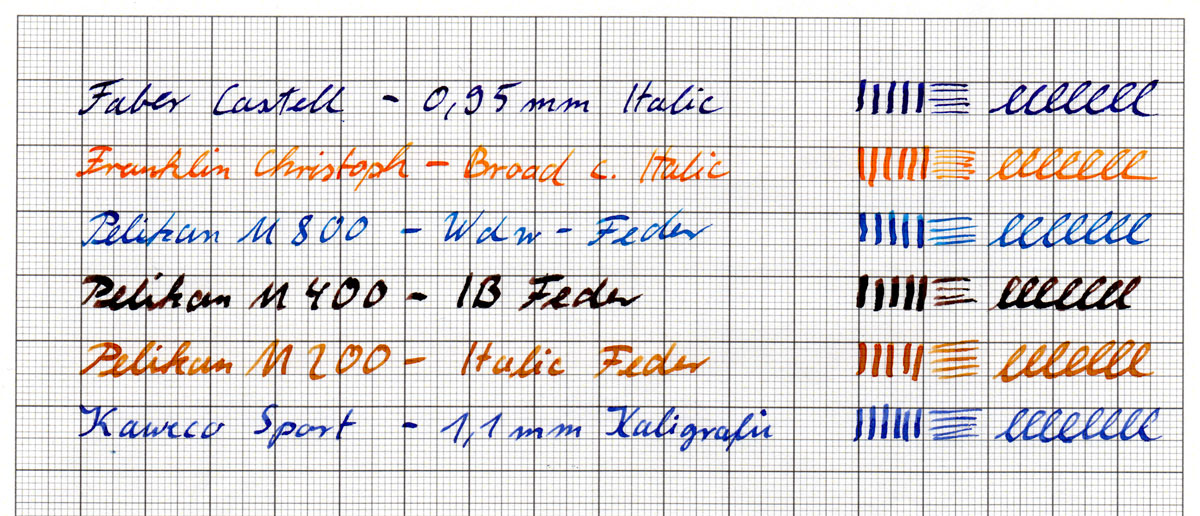 Faber Castell - 0,95 mm Italic
Franklin Christoph - Broad c. Italic
Pelikan M 800 - Wdw - Feder
Pelikan M 400 - IB Feder
Pelikan M 200 - Italic Feder
Kaweco Sport - 1,1 mm Kaligrafie